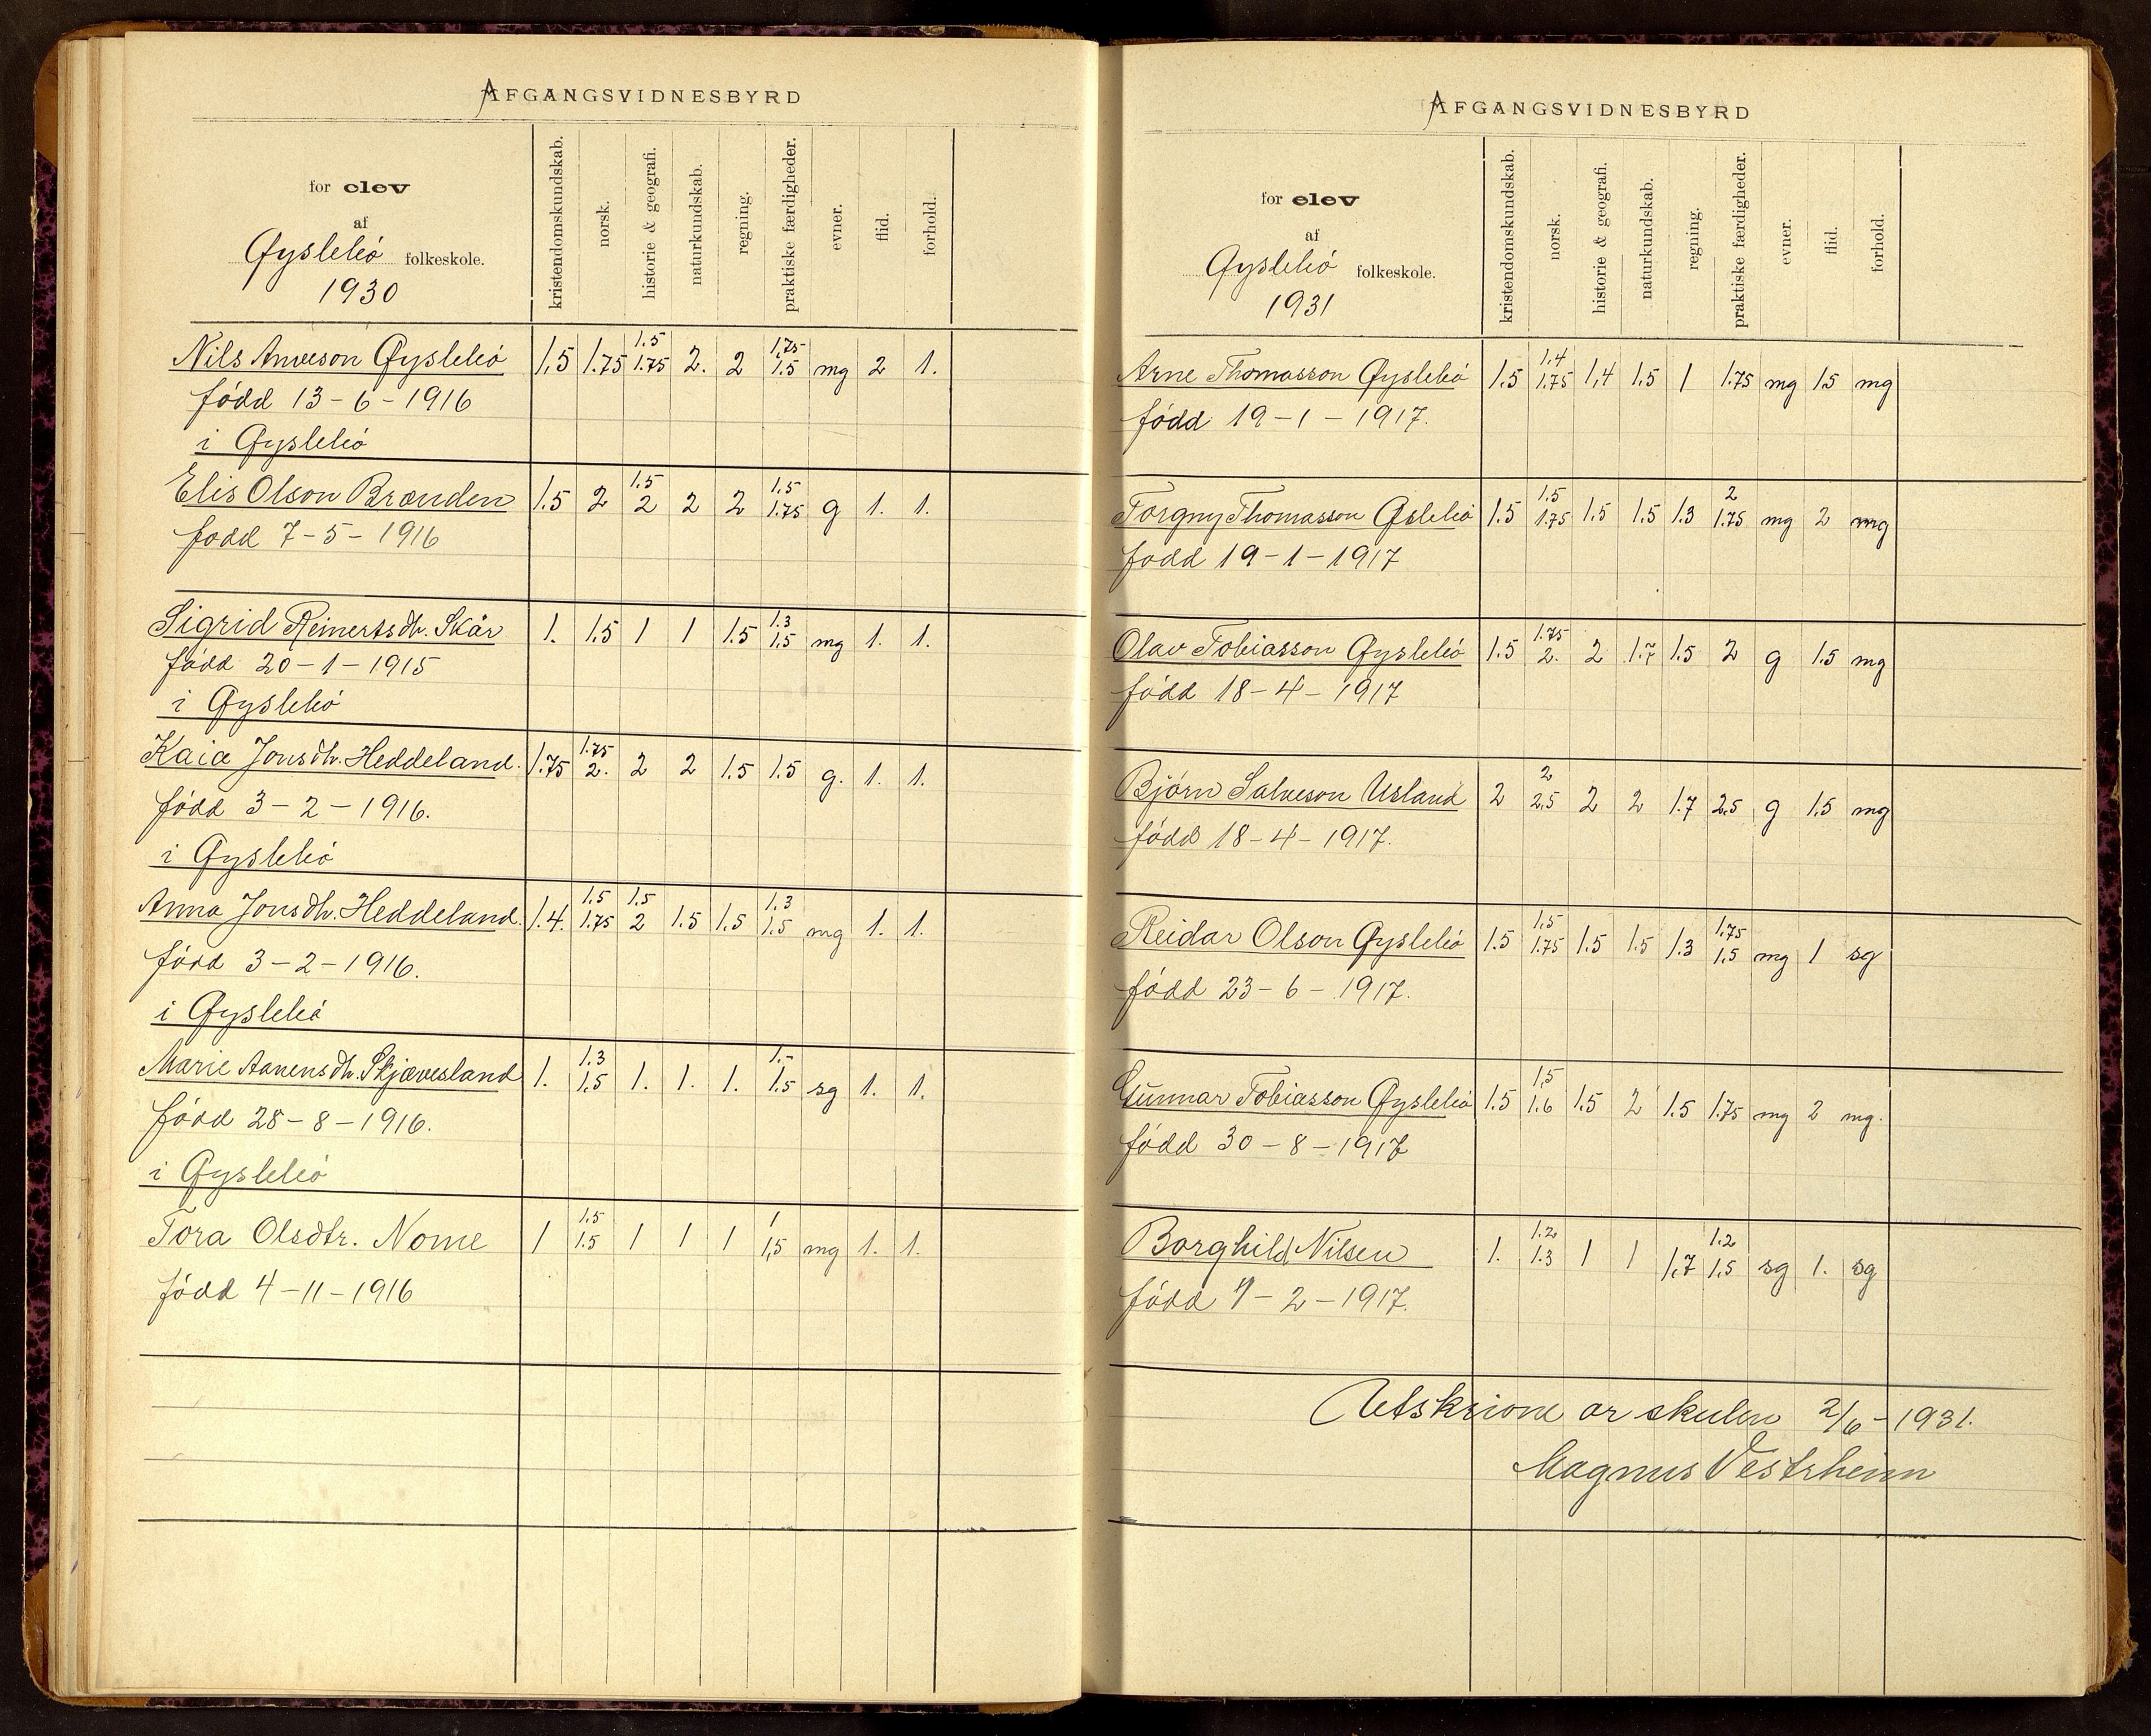 AFGANGSVIDNESBYRD
for elev
af
Øyslebö folkeskole.
1930
kristendomskundskab.
norsk.
historie & geografi.
naturkundskab.
regning.
praktiske færdigheder.
evner.
flid.
forhold.
1.5 1.75
Nils Øyslebö 1,5 1.75 1.75 2. 2 1.5 mg 2 1.
född 13-6-1916
i Øyslebö
1.5 1.5
Elis Olson Brænden 1.5 2 2 2 2 1.75 g 1. 1.
fodd 7-5-1916
1.3
Sigrid Reinertsdtr. Skår 1. 1.5 1 1 1.5 1.5 mg 1. 1.
född 20-1-1915
i Øyslebö
1.75
Kaia Jonsdtr. Heddeland. 1.75 2. 2 2 1.5 1.5 g. 1. 1.
född 3-2-1916.
i Øyslebö
1.5 1.5 1.3
Anna Jonsdtr. Heddeland. 1.4. 1.75 2 1.5 1.5 1.5 mg 1. 1.
född 3-2-1916.
i Øyslebö
1.3 1.-
Marie Aanensdtr. Skjævesland 1. 1.5 1. 1. 1. 1.5 sg 1. 1.
född 28-8-1916.
i Øyslebö
1.5 1
Tora Olsdtr. Nome 1 1.5 1 1 1 1,5 mg 1. 1.
född 4-11-1916
AFGANGSVIDNESBYRD
for elev
af
Øyslebö folkeskole.
1931
kristendomskundskab.
norsk.
historie & geografi.
naturkundskab.
regning.
praktiske færdigheder.
evner.
flid.
forhold.
1,4
Arne Thomasson Øyslebö 1.5 1.75 1,4 1.5 1 1.75 mg 1.5 mg
född 19-1-1917.
1.5 2
Torgny Thomasson Øslebö 1.5 1.75 1.5 1.5 1.3 1.75 mg 2 mg
fodd 19-1-1917
1.75
Olav Tobiasson Øyslebö 1.5 2. 2 1.7 1.5 2 g 1.5 mg
född 18-4-1917
2
Björn Salveson Usland 2 2,5 2 2 1.7 2,5 g 1.5 mg
född 18-4-1917.
1,5 1.75
Reidar Olson Øyslebö 1.5 1.75 1.5 1.5 1.3 1.5 mg 1 sg
född 23-6-1917.
1,5
Gunnar Tobiasson Øyslebö 1.5 1.6 1.5 2 1.5 1.75 mg 2 mg.
född 30-8-1917
1.2 1.2
Borghild Nilsen 1. 1.3 1 1 1,7 1,5 sg 1. sg
född -2-1917.
Utskrivne or skulen 2/6-1931.
Magnus Vestrheim